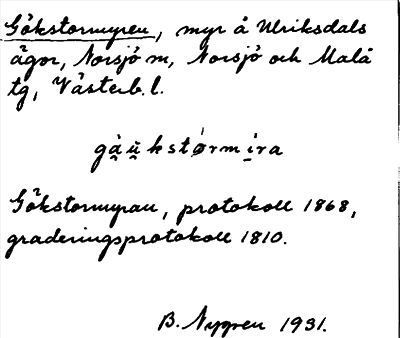 Gökstormyren, myr å Ulriksdals
ägor, Norsjö sn, Norsjö och Malå
tg, Västerb. l.
gàŭkstǿrmira
Gökstormyran, protokoll 1868,
graderingsprotokoll 1810.
B. Nygren 1931.